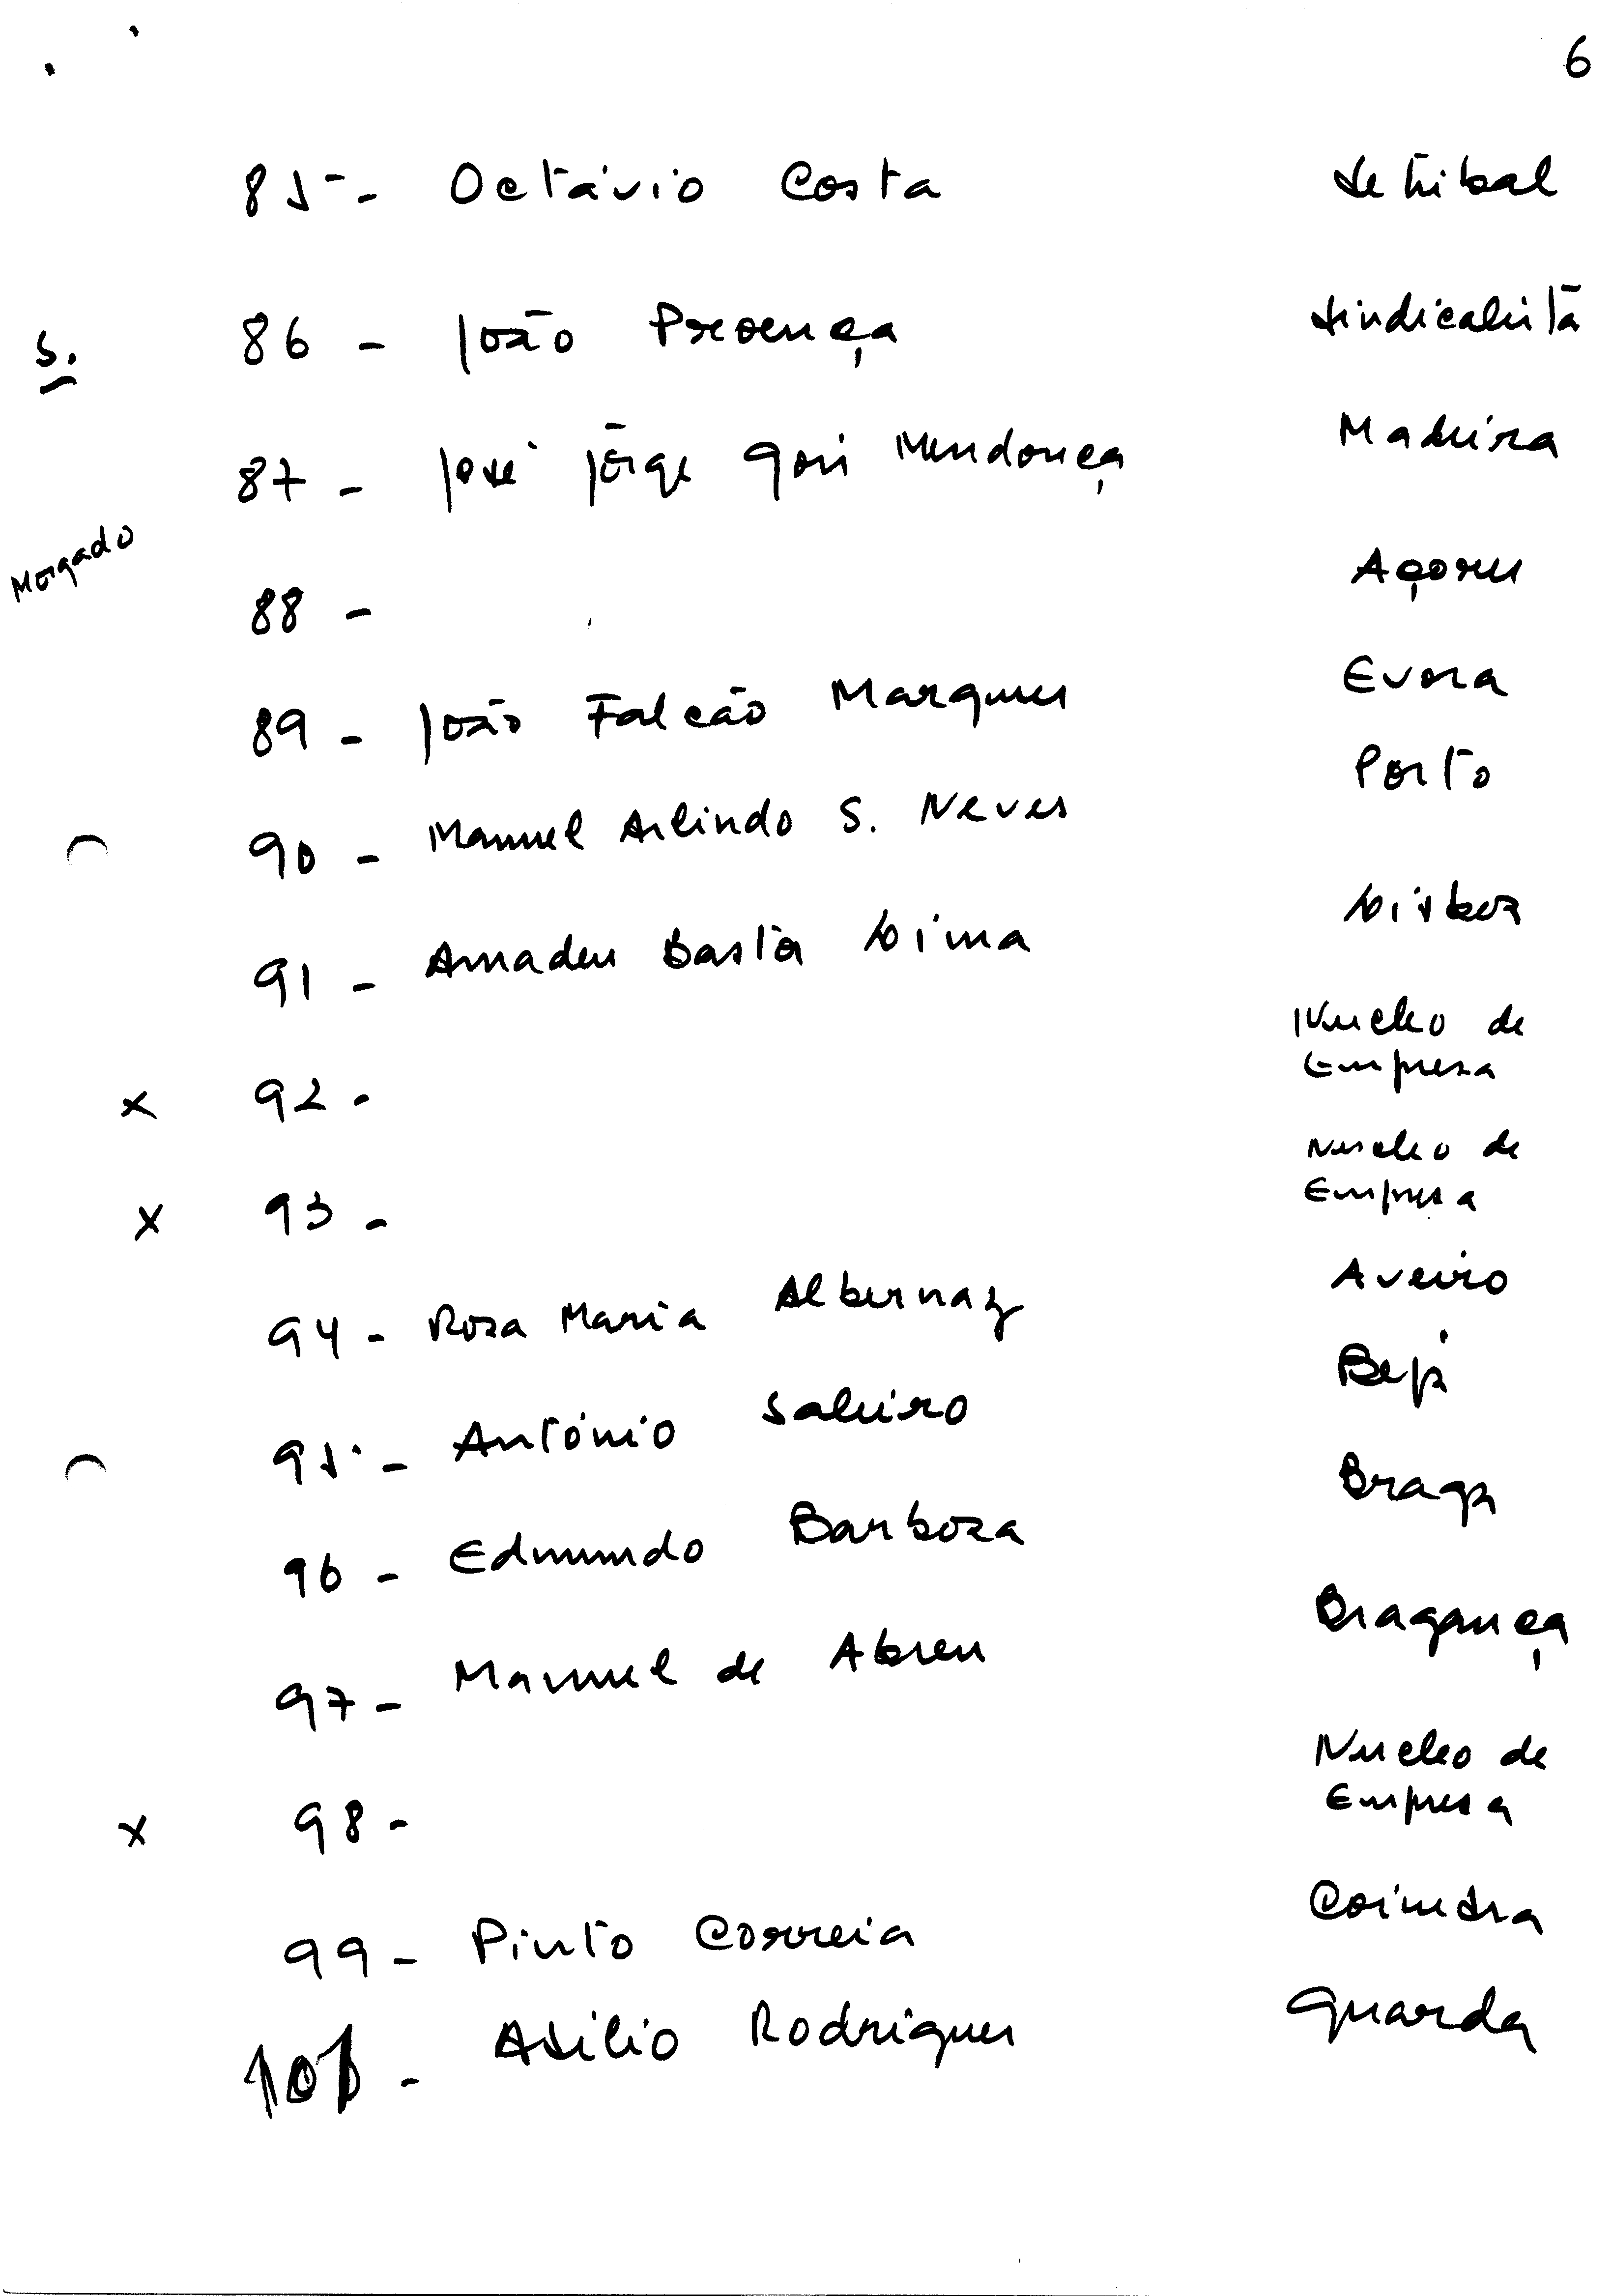 6
85 - Octávio Costa Setúbal
S. 86 - João Proença Sindicalista
87 - José Jorge Gois Mendonça Madeira
Morgado
88 - Açores
89 - João Falcão Marques Evora
90 - Manuel Arlindo S. Neves Porto
91 - Amadeu Basto Lima Lisboa
x 92 - Nucleo de
Empresa
x 93 - Nucleo de
Empresa
94 - Rosa Maria Albernaz Aveiro
95 - António Saleiro Beja
96 - Edmundo Barbosa Braga
97 - Manuel de Abreu Bragança
x 98 - Nucleo de
Empresa
99 - Pinto Correia Coimbra
101 - Abílio Rodrigues Guarda